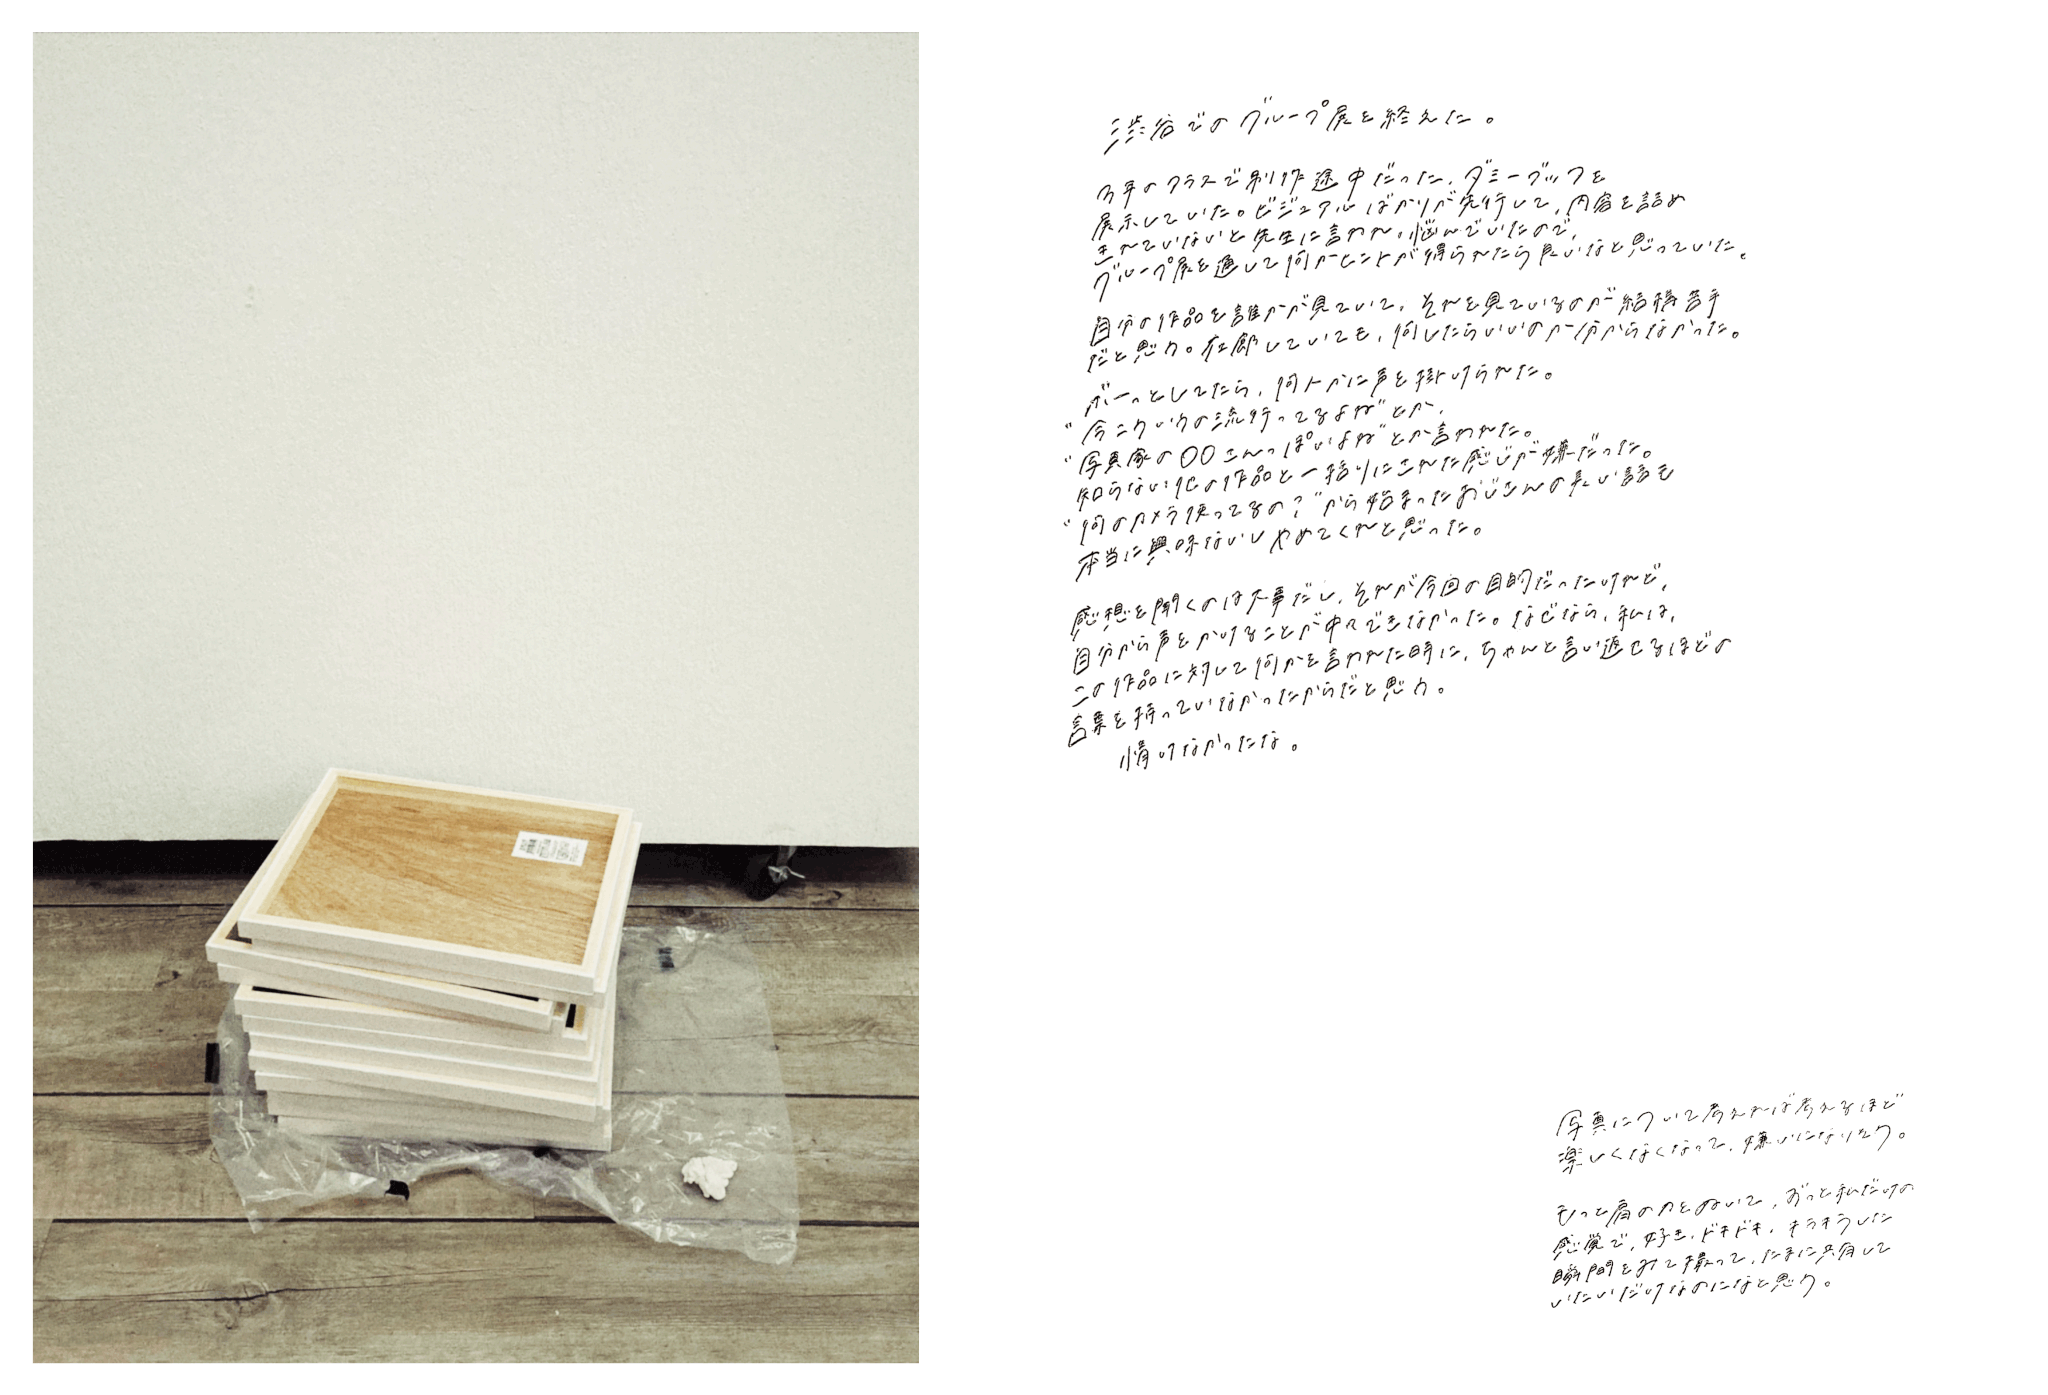 渋谷でのグループ展を終えた。
3年のクラスで制作途中だった、ダミーブックを
展示していた。ビジュアルばかりが先行して、内容を詰め
きれていないと先生に言われ、悩んでいたので、
グループ展を通して何かヒントが得られたら良いなと思っていた。
自分の作品を誰かが見ていて、それを見ているのが結構苦手
だと思う。在廊していても、何したらいいのか分からなかった。
ボーっとしてたら、何人かに声を掛けられた。
"今こういうの流行ってるよね"とか、
"写真家の〇〇さんっぽいよね"とか言われた。
知らない他の作品と一括りにされた感じが嫌だった。
"何のカメラ使ってるの？"から始まったおじさんの長い話も
本当に興味ないしやめてくれと思った。
感想を聞くのは大事だし、それが今回の目的だったけれど、
自分から声をかけることが中々できなかった。なぜなら、私は、
この作品に対して何かを言われた時に、ちゃんと言い返せるほどの
言葉を持っていなかったからだと思う。
情けなかったな。
写真について考えれば考えるほど
楽しくなくなって、嫌いになりそう。
もっと肩の力をぬいて、ずっと私だけの
感覚で、好き、ドキドキ、キラキラした
瞬間をみて撮って、たまに共有して
いたいだけなのになと思う。